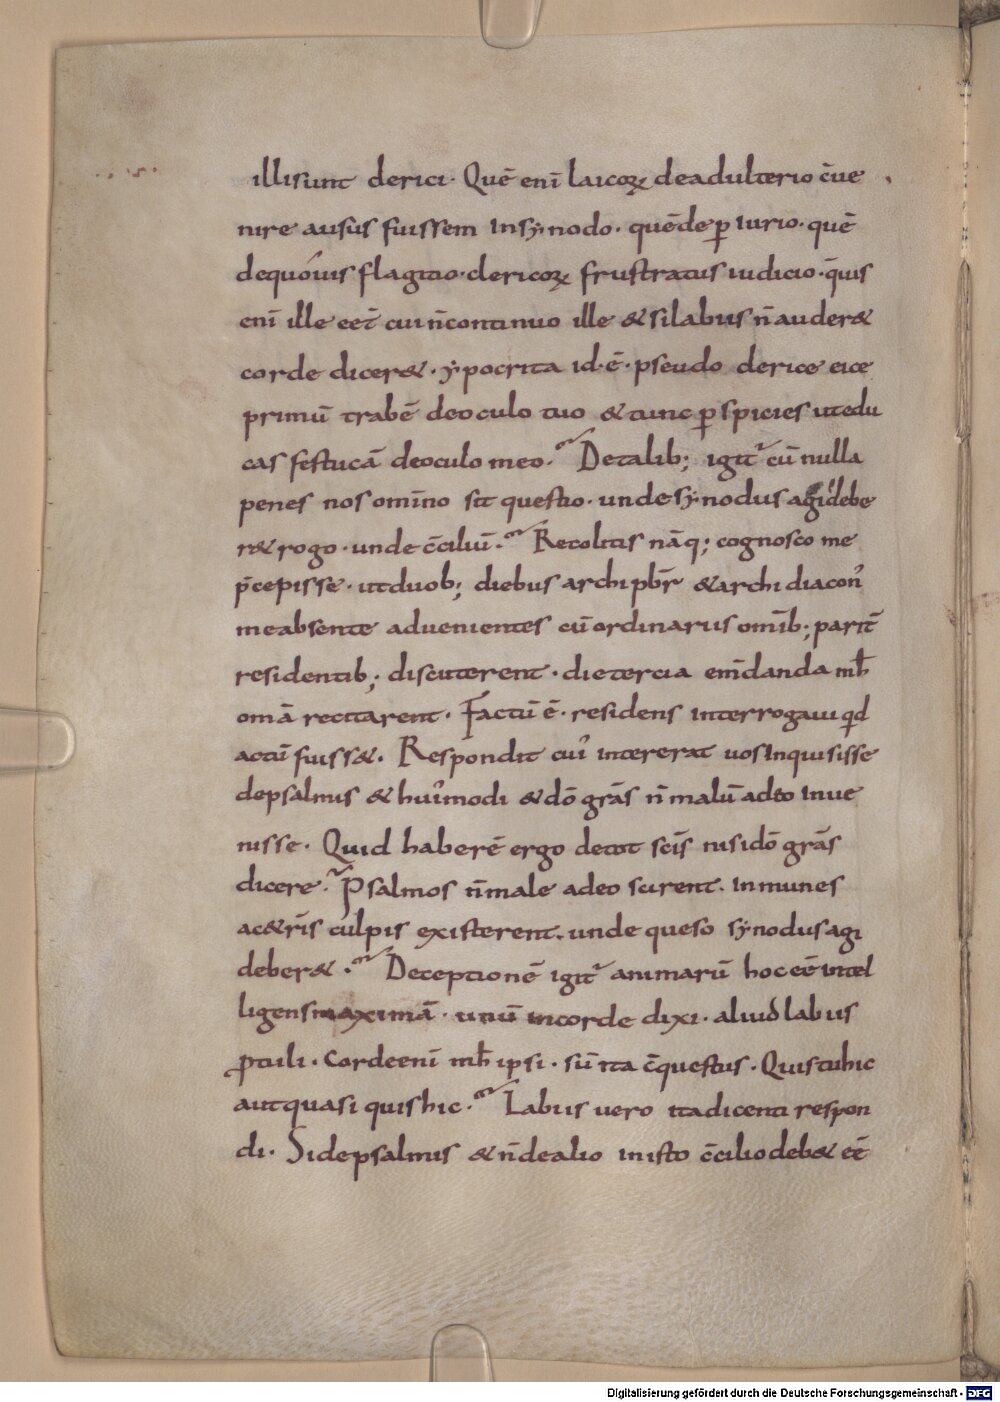 illi sunt clerici. Quē enī laicoꝝ de adulterio c̄ue
nire ausus fuissem in sẏnodo. quē de ꝑiurio. quē
de quouis flagitio. clericoꝝ frustratus iudicio. q̄uis
enī ille eēt cui n̄ continuo ille & si labiis n̄ auder&
corde dicer&. ẏpocrita id. ē. pseudo clerice eice
primū trabē de oculo tuo & tunc ꝑspicies ut edu
cas festucā de oculo meo. De talib; igit̄ cū nulla
penes nos omīno sit questio. unde sẏnodus agi debe
r& rogo. unde c̄ciliū. Recolens nāq; cognosco me
p̄cepisse. ut duob; diebus archipbr̄ & archidiacon᾽
me absente aduenientes cū ordinariis omīb; parit̄
residentib; discuterent. die tercia em̄danda mh̄
omā recitarent. Factū ē. residens interrogaui qd
actū fuiss&. Respondit cui᾽ intererat uos inquisisse
de psalmis & hui᾽modi & dō grās n̄ malū adeo inue
nisse. Quid haberē ergo de tot scīs nisi dō grās
dicere. Psalmos n̄ male adeo scirent. inmunes
a c&rīs culpis existerent. unde queso sẏnodus agi
deber&. Deceptionē igit̄ animarū hoc eē intel
ligens maximā. unū in corde dixi. aliud labiis
ꝓtuli. Corde enī mh̄ ipsi. sū ita c̄questus. Quis tu hic
aut quasi quis hic. Labiis uero ita dicenti respon
di. Si de psalmis & n̄ de alio in isto c̄cilio deb& eē
Digitalisierung gefördert durch die Deutsche Forschungsgemeinschaft - DFG